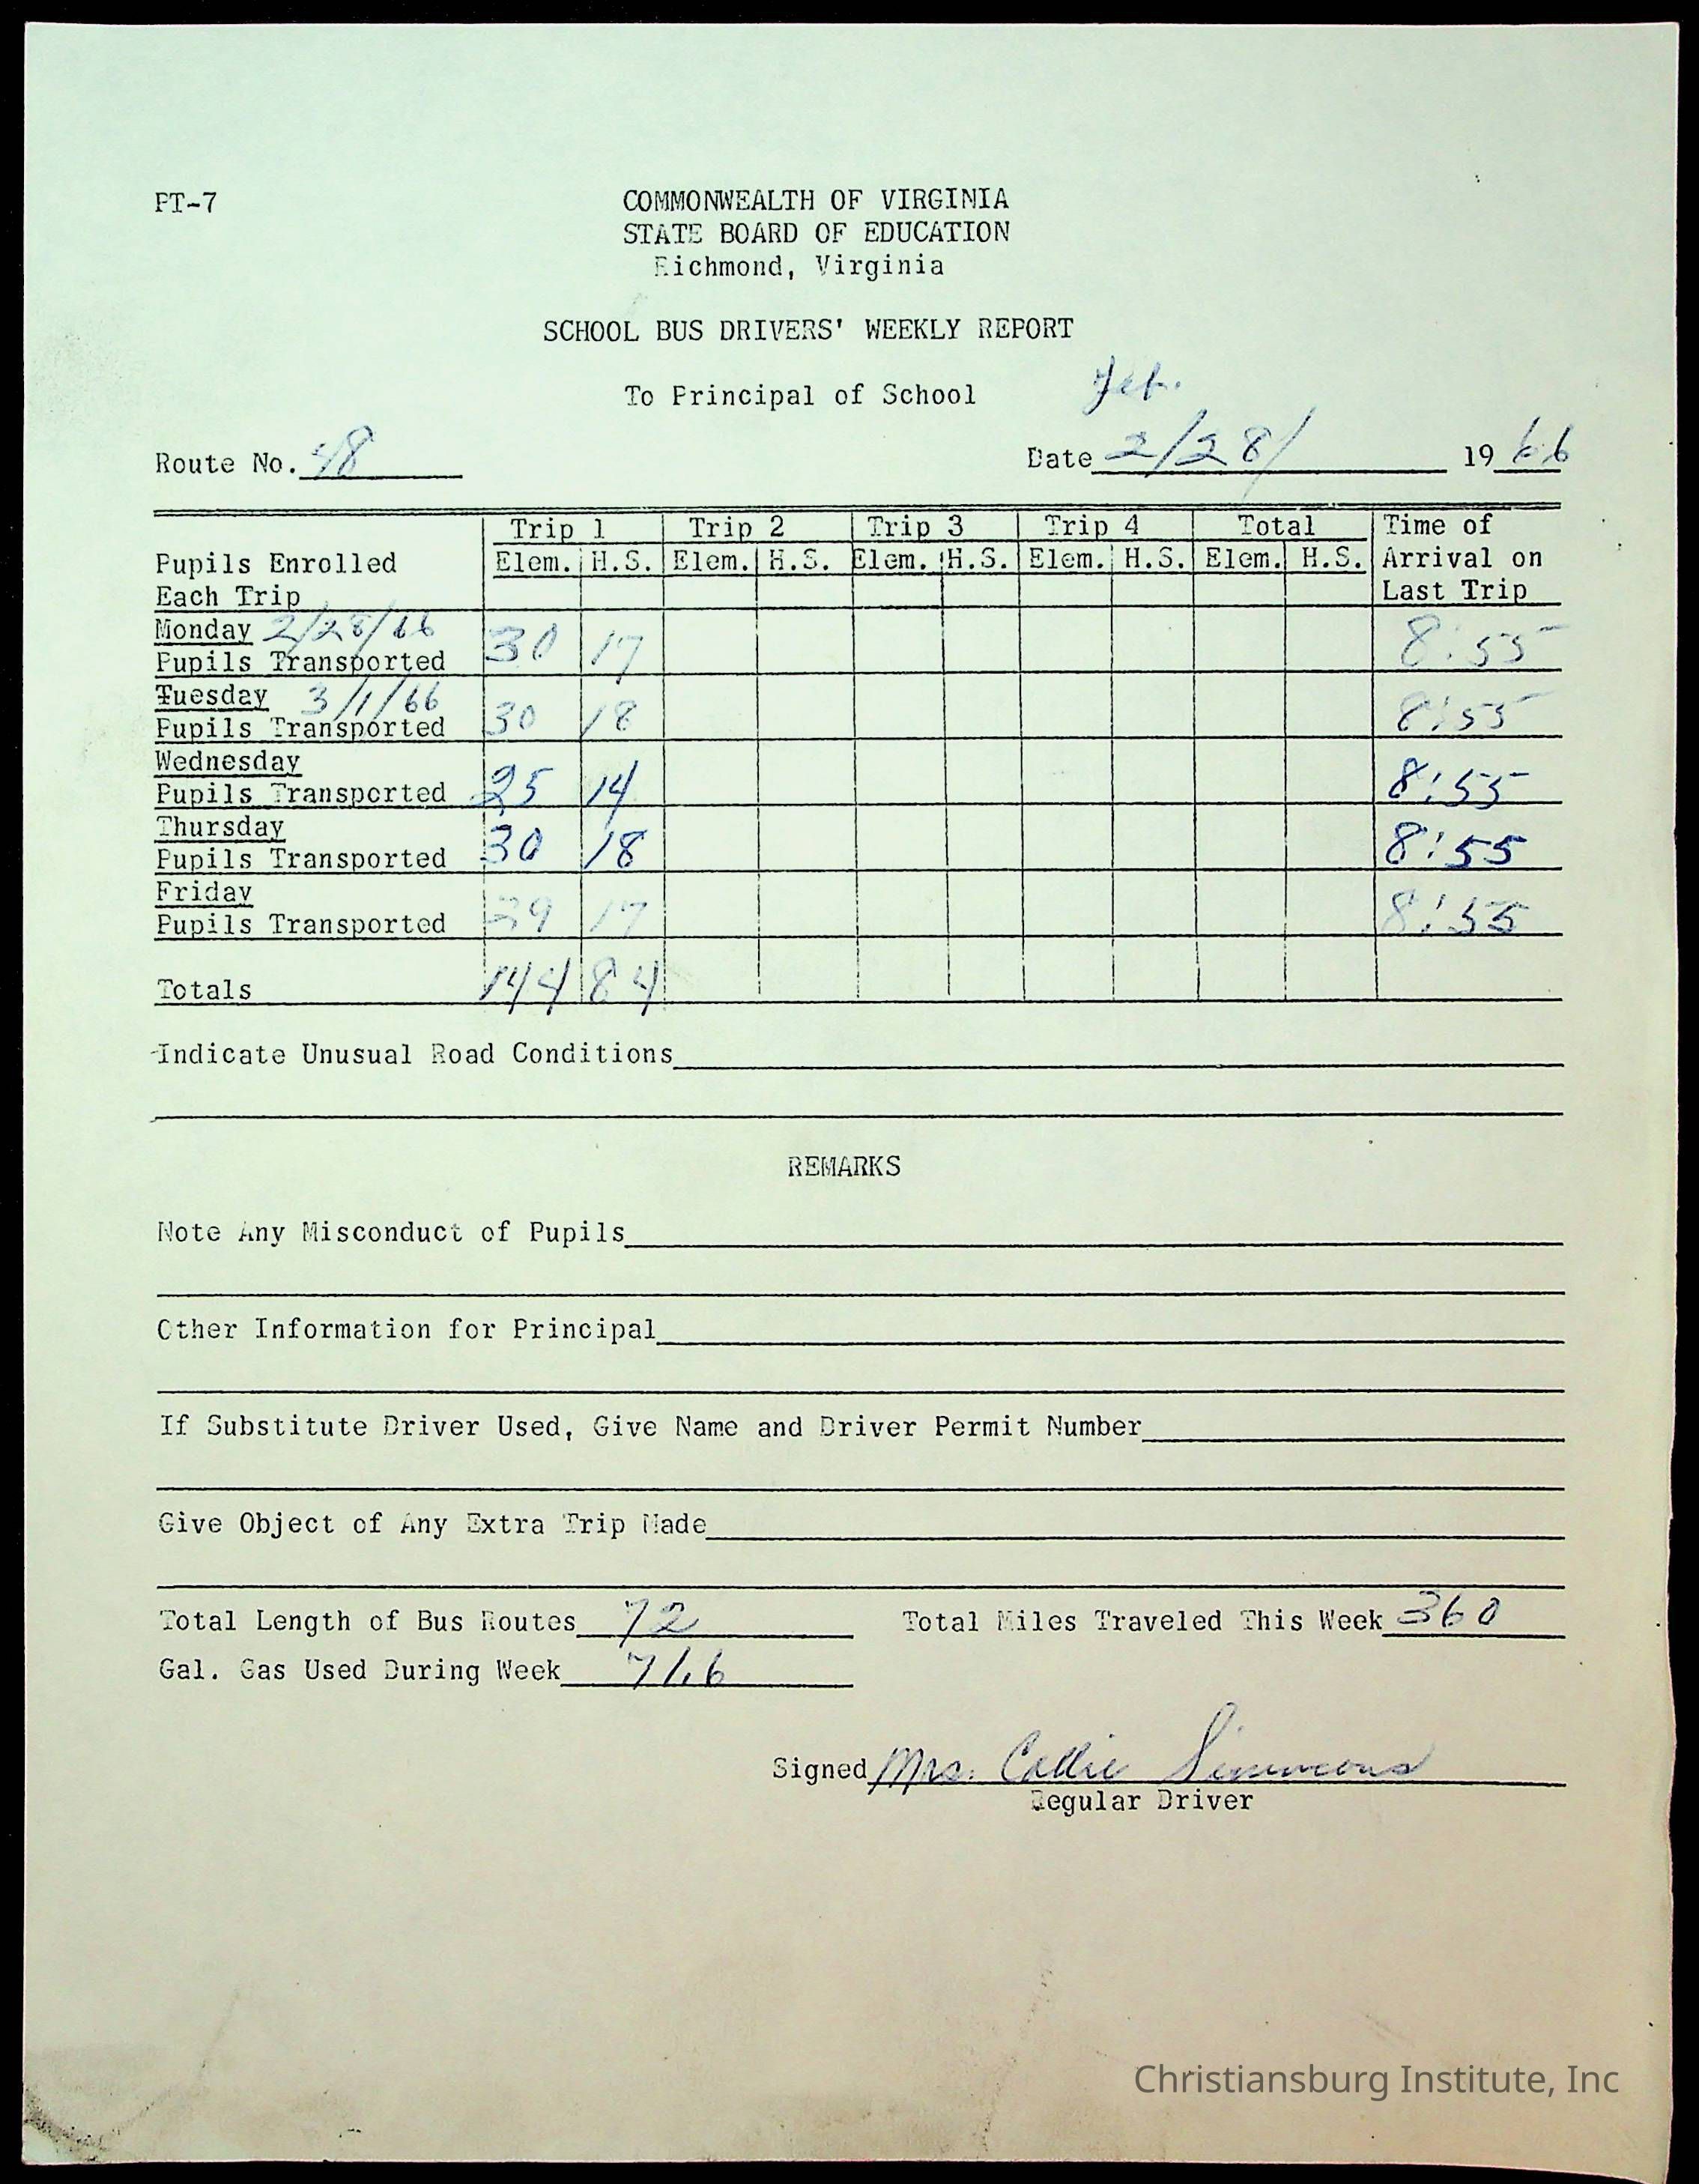 PT-7
COMMONWEALTH OF VIRGINIA
STATE BOARD OF EDUCATION
Richmond, Virginia
SCHOOL BUS DRIVERS' WEEKLY REPORT
To Principal of School
Feb.
Route No. 48 Date 2/28/ 19 66
Trip 1 Trip 2 Trip 3 Trip 4 Total Time of
Pupils Enrolled Elem. H.S. Elem. H.S. Elem. H.S. Elem. H.S. Elem. H.S. Arrival on
Each Trip Last Trip
Monday 2/28/66
Pupils Transported 30 17 8:55
Tuesday 3/1/66
Pupils Transported 30 18 8:55
Wednesday
Pupils Transported 25 14 8:55
Thursday
Pupils Transported 30 18 8:55
Friday
Pupils Transported 29 17 8:55
Totals 144 84
Indicate Unusual Road Conditions
REMARKS
Note Any Misconduct of Pupils
Other Information for Principal
If Substitute Driver Used, Give Name and Driver Permit Number
Give Object of Any Extra Trip Made
Total Length of Bus Routes 72 Total Miles Traveled This Week 360
Gal. Gas Used During Week 71.6
Signed Mrs. Callie Simmons
Regular Driver
Christiansburg Institute, Inc